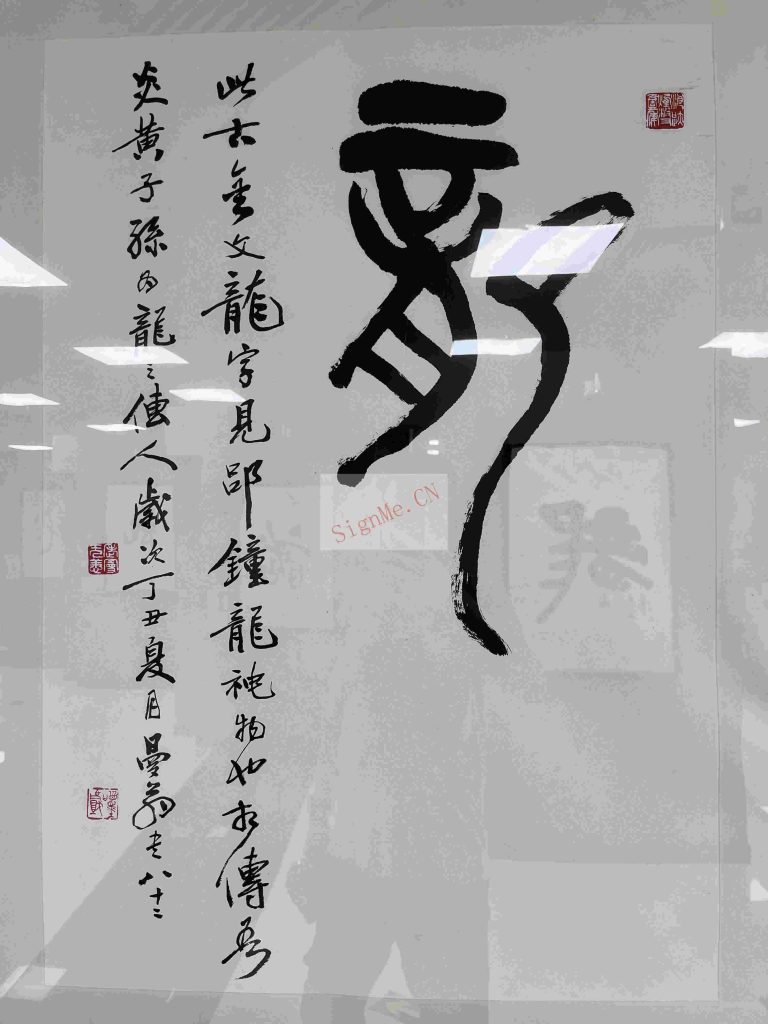 龍
此古金文龍字見邵鐘龍神物也相傳吾
炎黃子孫為龍之傳人歲次丁丑夏月曼翁書八十二
SignMe.CN